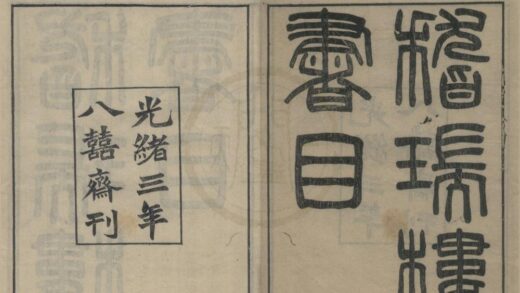 稽瑞樓
書目
光緒三年
八囍齋刊